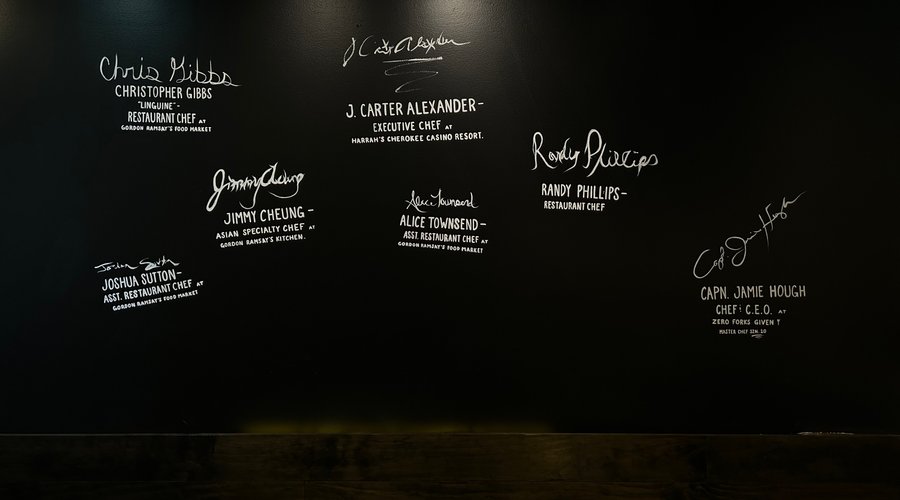 Chris Gibbs
CHRISTOPHER GIBBS
"LINGUINE"-
RESTAURANT CHEF AT
GORDON RAMSAY'S FOOD MARKET
J Carter Alexander
J. CARTER ALEXANDER-
EXECUTIVE CHEF AT
HARRAH'S CHEROKEE CASINO RESORT.
Randy Phillips
RANDY PHILLIPS-
RESTAURANT CHEF
Jimmy Cheung
JIMMY CHEUNG-
ASIAN SPECIALTY CHEF AT
GORDON RAMSAY'S KITCHEN.
Alice Townsend
ALICE TOWNSEND-
ASST. RESTAURANT CHEF AT
GORDON RAMSAY'S FOOD MARKET
Joshua Sutton
JOSHUA SUTTON-
ASST. RESTAURANT CHEF AT
GORDON RAMSAY'S FOOD MARKET
Capn. Jamie Hough
CAPN. JAMIE HOUGH
CHEF: C.E.O. AT
ZERO FORKS GIVEN
MASTER CHEF SZN. 10